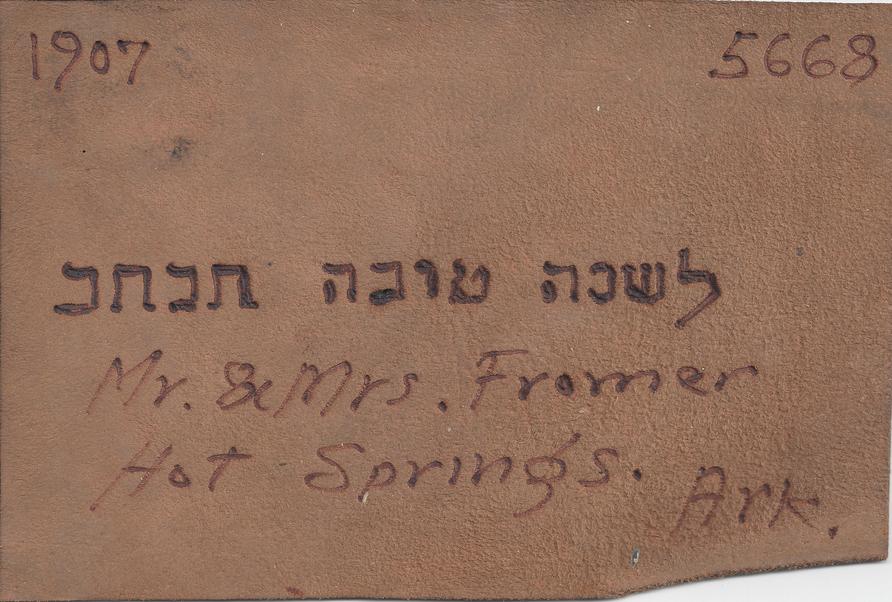 1907 5668
לשנה טובה תכתב
Mr. & Mrs. Fromer
Hot Springs. Ark.